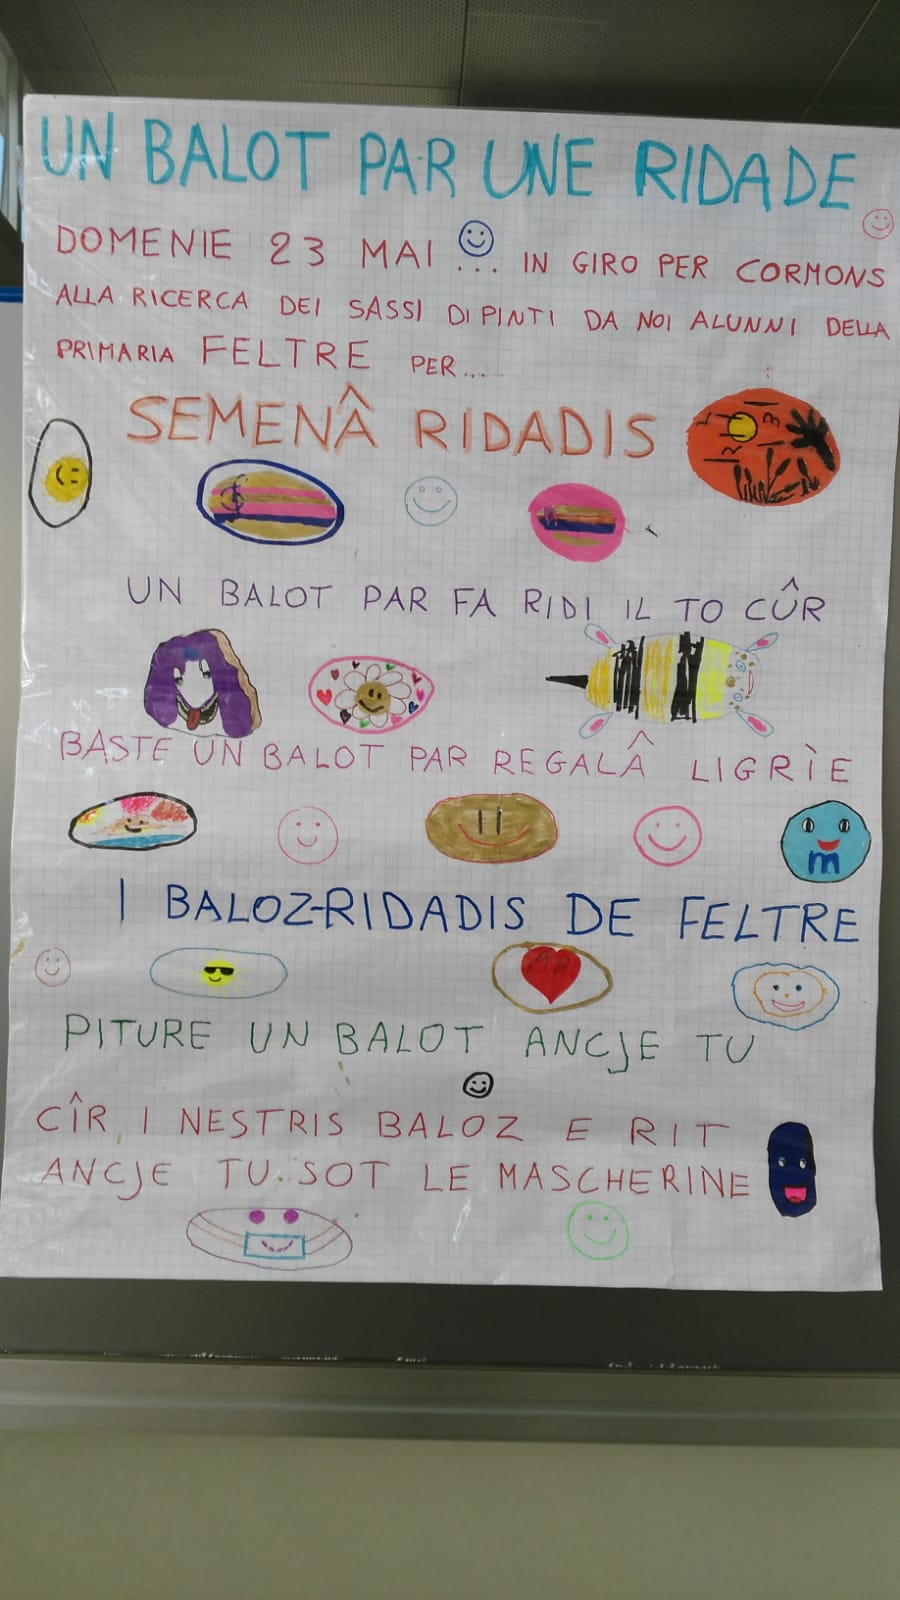 UN BALOT PAR UNE RIDADE
DOMENIE 23 MAI ... IN GIRO PER CORMONS
ALLA RICERCA DEI SASSI DIPINTI DA NOI ALUNNI DELLA
PRIMARIA FELTRE PER...
SEMENÂ RIDADIS
UN BALOT PAR FA RIDI IL TO CÛR
BASTE UN BALOT PAR REGALÂ LIGRÌE
m
I BALOZ-RIDADIS DE FELTRE
PITURE UN BALOT ANCJE TU
CÎR I NESTRIS BALOZ E RIT
ANCJE TU SOT LE MASCHERINE